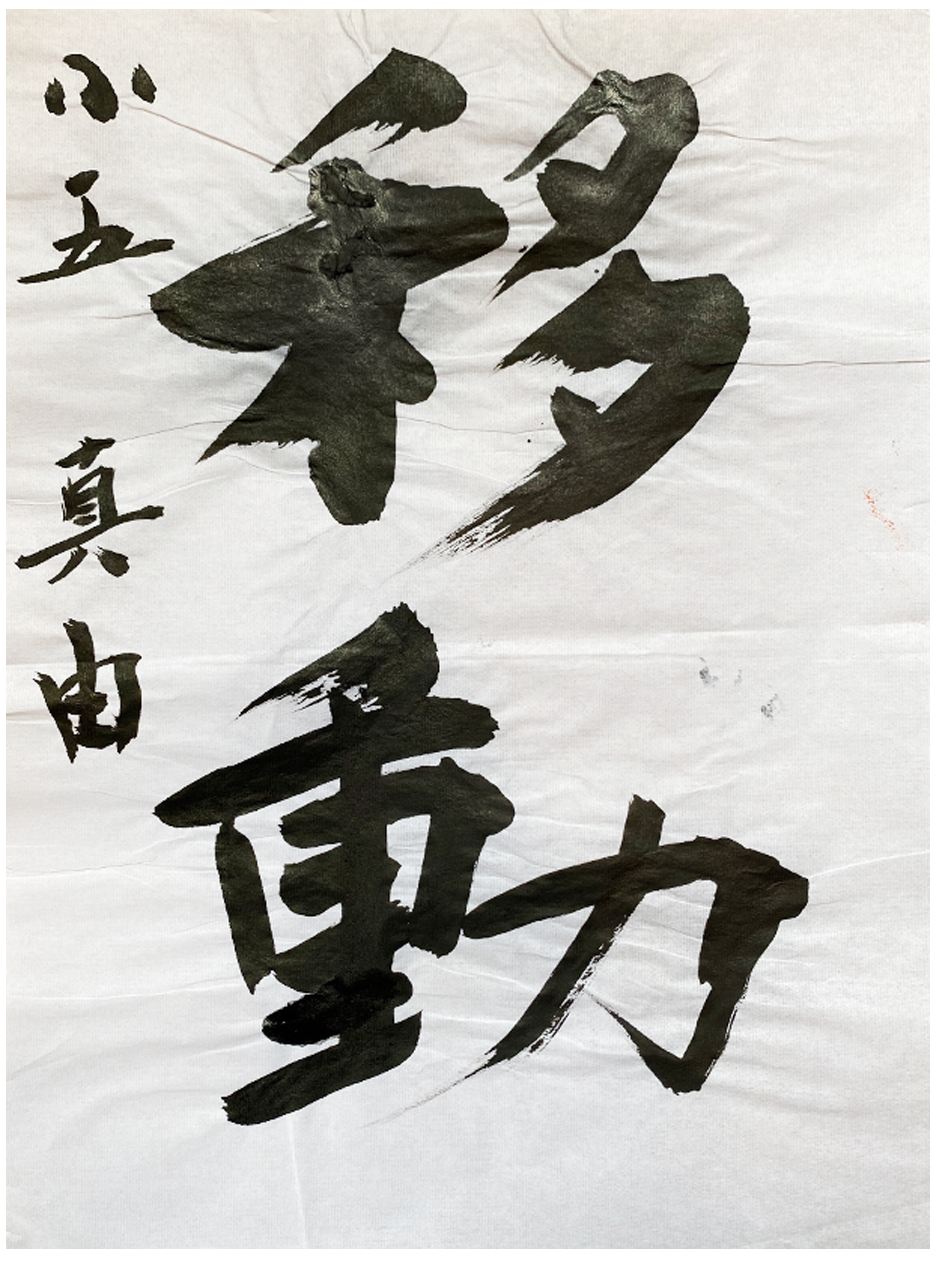 移動
小五 真由